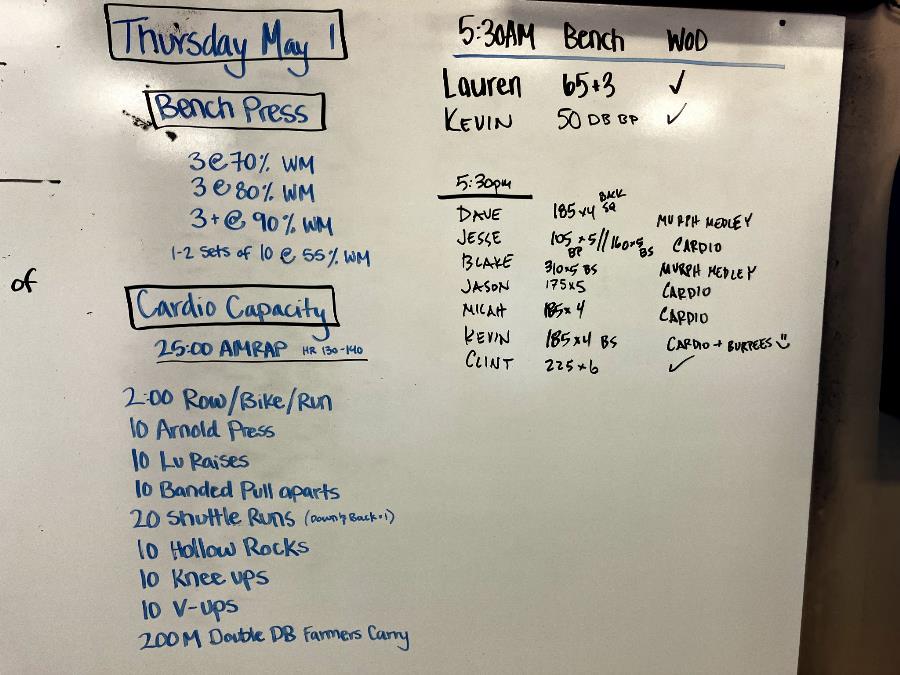 Thursday May 1
Bench Press
3 @ 70% WM
3 @ 80% WM
3+ @ 90% WM
1-2 Sets of 10 @ 55% WM
Cardio Capacity
25:00 AMRAP HR 130-140
2:00 Row/Bike/Run
10 Arnold Press
10 Lu Raises
10 Banded Pull aparts
20 Shuttle Runs (Down & Back=1)
10 Hollow Rocks
10 Knee ups
10 V-ups
200M Double DB Farmers Carry
of
5:30AM Bench WOD
Lauren 65+3 ✓
KEVIN 50 DB BP ✓
5:30pm
DAVE 185x4 BACK SQ MURPH MEDLEY
JESSE 105 x5 BP // 160x5 BS CARDIO
BLAKE 310x5 BS MURPH MEDLEY
JASON 175x5 CARDIO
MICAH 185x4 CARDIO
KEVIN 185x4 BS CARDIO + BURPEES
CLINT 225x6 ✓